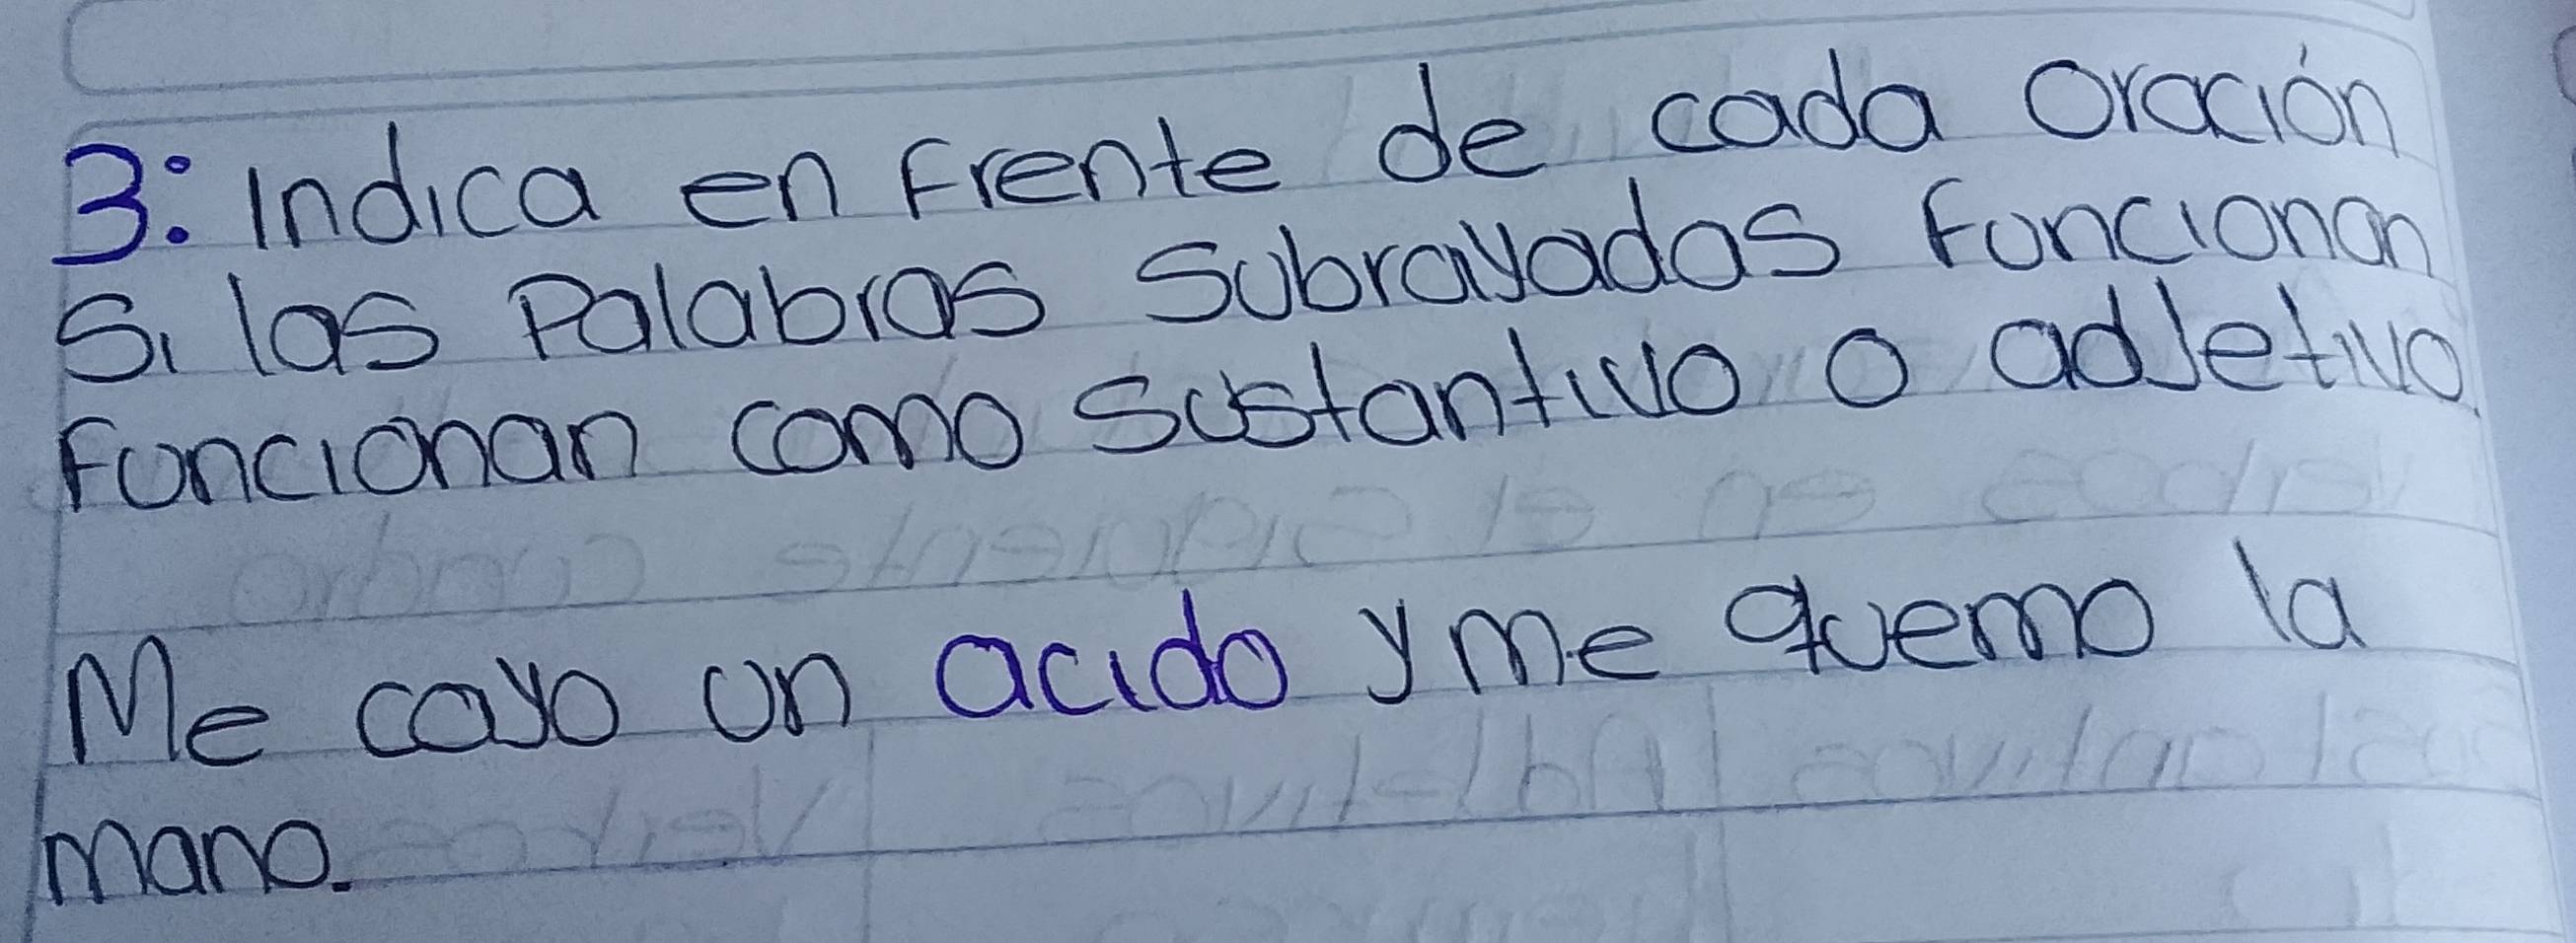 3: Indica en frente de cada oración
si las Palabras subrayadas funcionan
funcionan como sustantivo o adjetivo.
Me cayo un acido y me quemo la
mano.